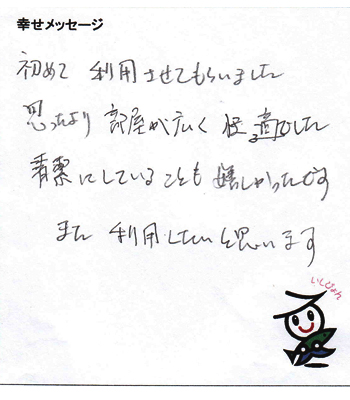 幸せメッセージ
初めて 利用させてもらいました
思ったより 部屋が広く 怪適でした
清潔にしていることも 嬉しかったです
また 利用したいと思います
いしぴょん